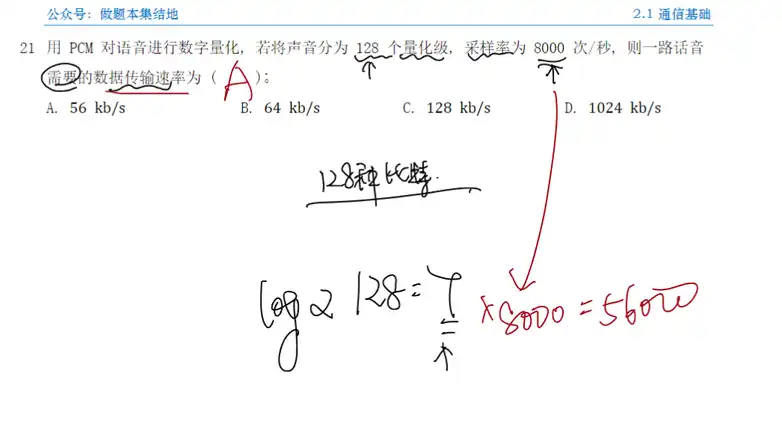 公众号：做题本集结地 2.1 通信基础
21 用 PCM 对语音进行数字量化，若将声音分为 128 个量化级，采样率为 8000 次/秒，则一路话音
需要的数据传输速率为（ A ）；
A. 56 kb/s B. 64 kb/s C. 128 kb/s D. 1024 kb/s
128种比特.
log 2 128 = 7 × 8000 = 56000